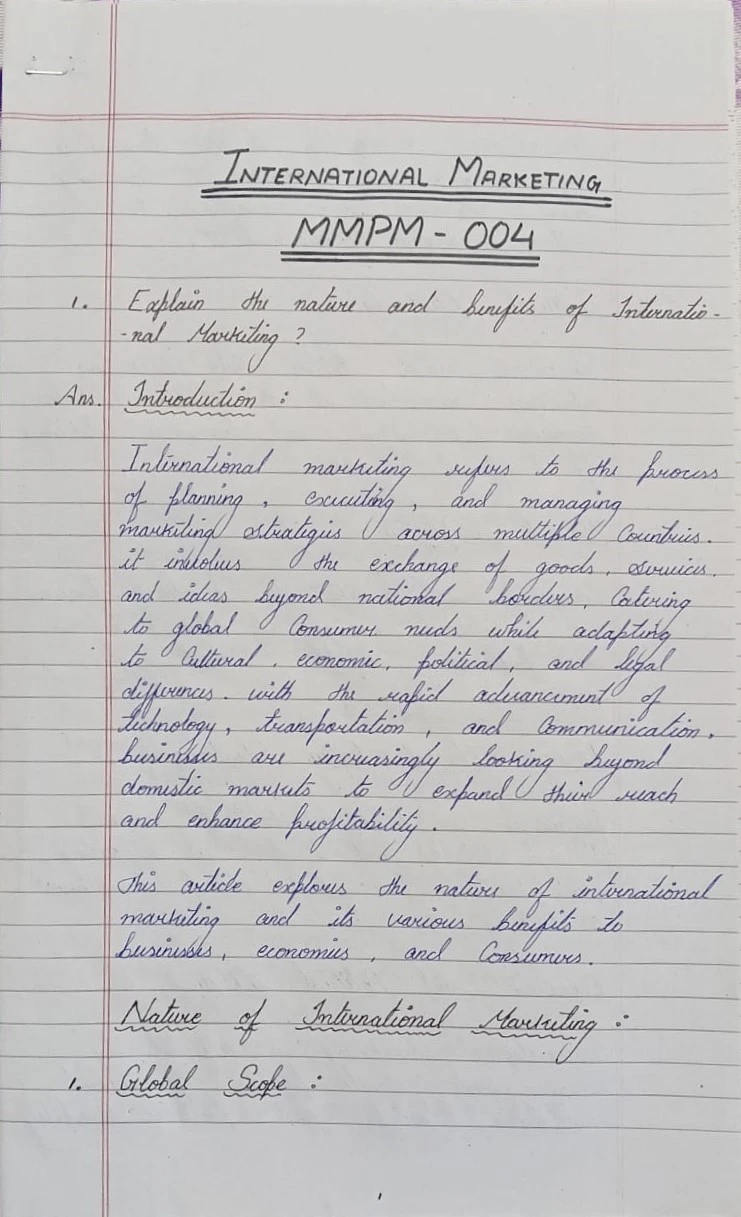 INTERNATIONAL MARKETING
MMPM - 004
1. Explain the nature and benefits of Internatio-
-nal Marketing ?
Ans. Introduction :
International marketing refers to the process
of planning, executing, and managing
marketing strategies across multiple Countries.
it involves the exchange of goods, services,
and ideas beyond national borders, Catering
to global Consumer needs while adapting
to Cultural, economic, political, and legal
differences. with the rapid advancement of
technology, transportation, and Communication,
businesses are increasingly looking beyond
domestic markets to expand their reach
and enhance profitability.
This article explores the nature of international
marketing and its various benefits to
businesses, economies, and Consumers.
Nature of International Marketing :
1. Global Scope :